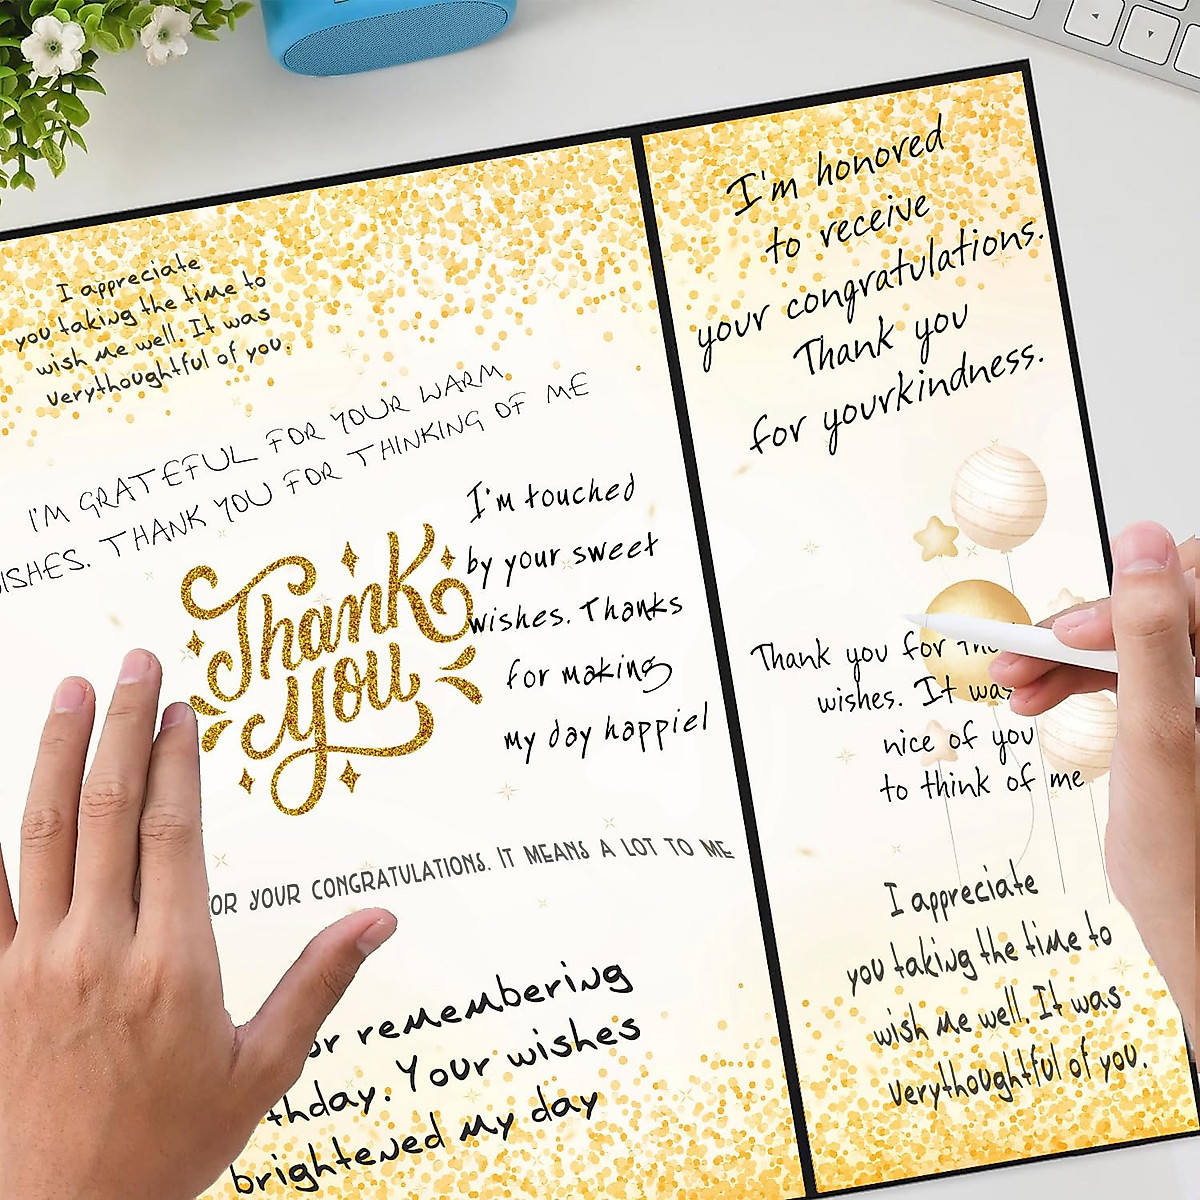 I appreciate
you taking the time to
wish me well. It was
verythoughtful of you.
I'M GRATEFUL FOR YOUR WARM
WISHES. THANK YOU FOR THINKING OF ME
Thank
you
I'm touched
by your sweet
wishes. Thanks
for making
my day happier
OR YOUR CONGRATULATIONS. IT MEANS A LOT TO ME
or remembering
thday. Your wishes
brightened my day
I'm honored
to receive
your congratulations.
Thank you
for yourkindness.
Thank you for
wishes. It was
nice of you
to think of me
I appreciate
you taking the time to
wish me well. It was
verythoughtful of you.